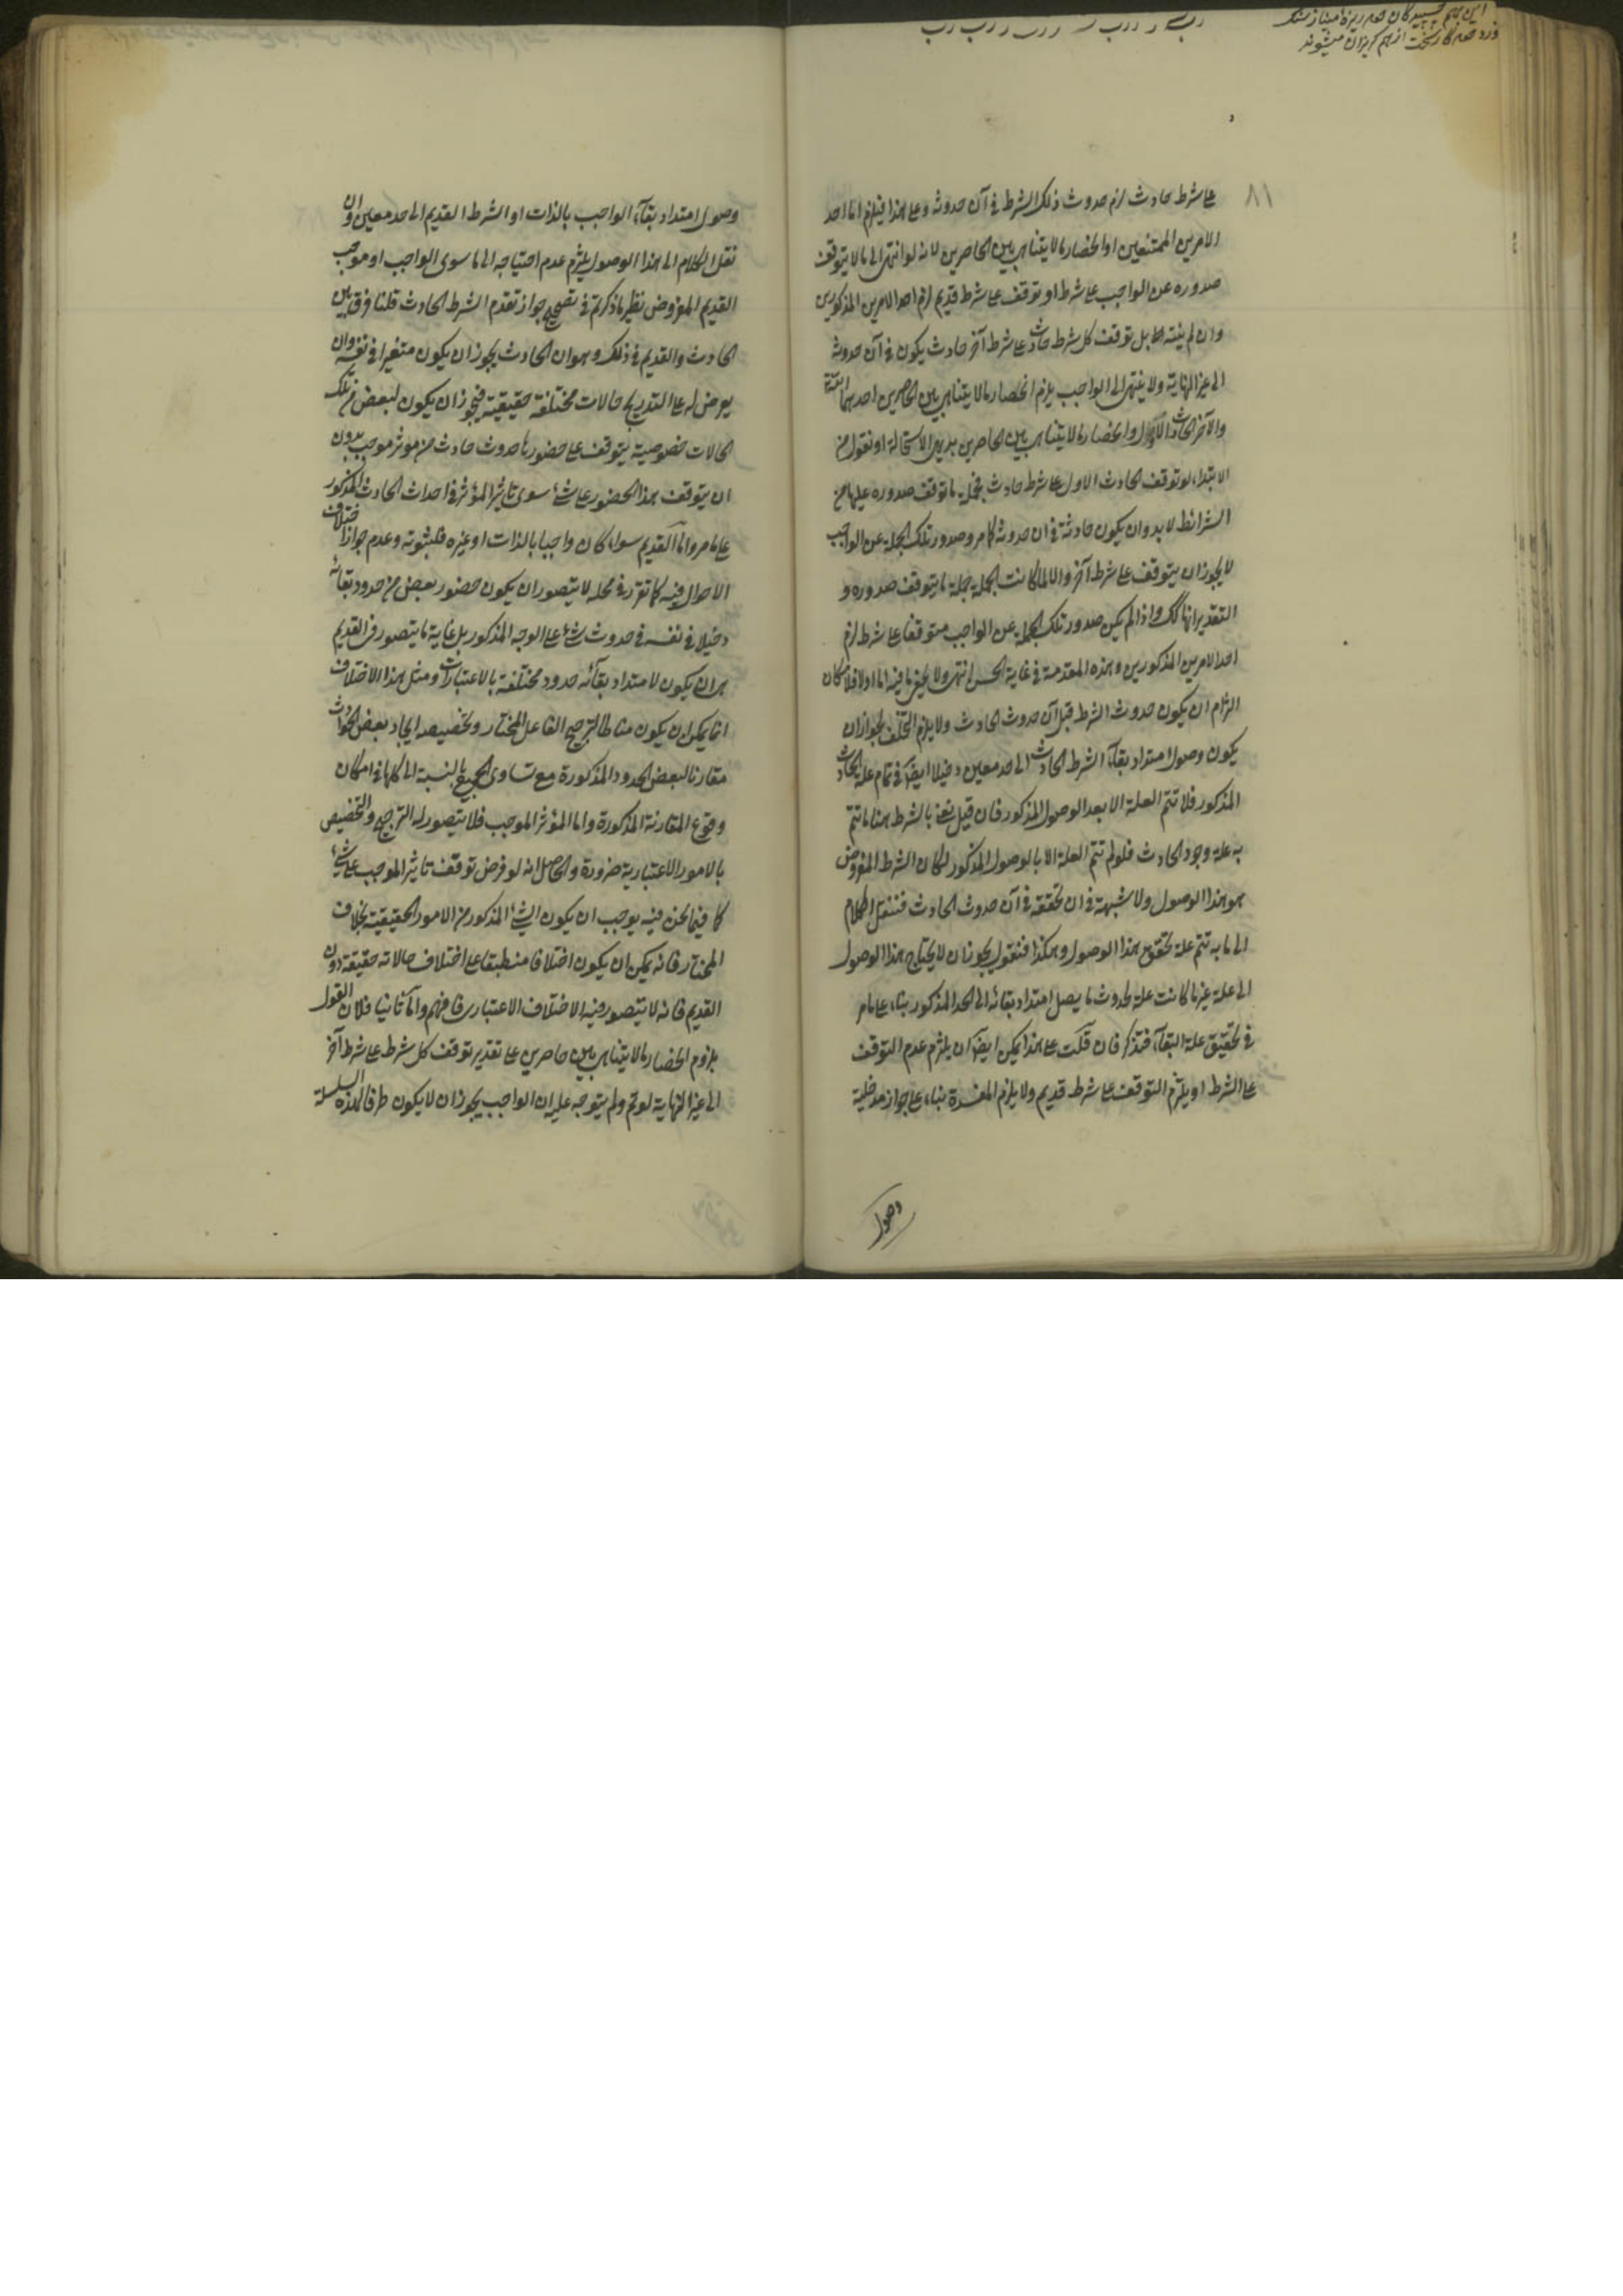 این بهم چسپیدگان همه ریزه مینا ز سنگ
فرد همه کار سخت از هم گریزان میشوند
٨١
على شرط حادث لزم حدوث ذلك الشرط فى آن حدوثه وعلى هذا فيلزم اما احد
الامرين الممتنعين او انحصار ما لا يتناهى بين الحاصرين لانه لو انتهى الى ما لا يتوقف
صدوره عن الواجب على شرط او توقف على شرط قديم لزم احد الامرين المذكورين
وان لم ينته بل توقف كل شرط حادث على شرط آخر حادث يكون فى آن حدوثه
الى غير النهاية ولا ينتهى الى الواجب يلزم انحصار ما لا يتناهى بين الحاصرين احدهما
والآخر الحادث الاول وانحصار ما لا يتناهى بين الحاصرين بديهى الاستحالة او نقول من
الابتداء لو توقف الحادث الاول على شرط حادث فجملة ما توقف صدوره عليها من
الشرائط لا بد وان يكون حادثة فى ان حدوثه كما مر وصدور تلك الجملة عن الواجب
لا يجوز ان يتوقف على شرط آخر والا لما كانت الجملة جملة ما يتوقف صدوره و
التقدير انها كك واذا لم يكن صدور تلك الجملة عن الواجب متوقفا على شرط لزم
احد الامرين المذكورين وهذه المقدمة فى غاية الحسن انتهى ولا يخفى ما فيه اما اولا فلامكان
التزام ان يكون حدوث الشرط قبل آن حدوث الحادث ولا يلزم التخلف لجواز ان
يكون وصول امتداد بقاء الشرط الحادث الى حد معين دخيلا ايضا فى تمام علة الحادث
المذكور فلا تتم العلة الا بعد الوصول المذكور فان قيل نعنى بالشرط هنا ما تتم
به علة وجود الحادث فلو لم تتم العلة الا بالوصول المذكور لكان الشرط المفروض
هو هذا الوصول ولا شبهة فى ان تحققه فى آن حدوث الحادث فننقل الكلام
الى ما به تتم علة تحقق هذا الوصول وهكذا فنقول يجوز ان لا يحتاج هذا الوصول
الى علة غير ما كانت علة لحدوث ما يصل امتداد بقائه الى الحد المذكور بناء على ما مر
فى تحقيق علة البقاء فتذكر فان قلت على هذا يمكن ايضا ان يلتزم عدم التوقف
على الشرط او يلتزم التوقف على شرط قديم ولا يلزم المفسدة بناء على جواز مدخلية
وصول
وصول امتداد بقاء الواجب بالذات او الشرط القديم الى حد معين وان
نقل الكلام الى هذا الوصول يلتزم عدم احتياجه الى ما سوى الواجب او موجب
القديم المفروض نظير ما ذكرتم فى تصحيح جواز تقدم الشرط الحادث قلنا فرق بين
الحادث والقديم فى ذلك وهو ان الحادث يجوز ان يكون متغيرا فى نفسه وان
يعرض له على التدريج حالات مختلفة حقيقية فيجوز ان يكون لبعض من تلك
الحالات خصوصية يتوقف على حضورها حدوث حادث من موثر موجب بدون
ان يتوقف هذا الحضور على شئ سوى تاثير المؤثر فى احداث الحادث المذكور
على ما مر واما القديم سواء كان واجبا بالذات او غيره فلثبوته وعدم جواز اختلاف
الاحوال فيه كما تقرر فى محله لا يتصور ان يكون حضور بعض من حدود بقائه
دخيلا فى نفسه فى حدوث شئ على الوجه المذكور بل غاية ما يتصور فى القديم
هو ان يكون لامتداد بقائه حدود مختلفة بالاعتبارات ومثل هذا الاختلاف
انما يمكن ان يكون مناطا لترجيح الفاعل المختار وتخصيصه ايجاد بعض الحوادث
مقارنا لبعض الحدود المذكورة مع تساوى الجميع بالنسبة الى كلها فى امكان
وقوع المقارنة المذكورة واما المؤثر الموجب فلا يتصور له الترجيح والتخصيص
بالامور الاعتبارية ضرورة والحاصل انه لو فرض توقف تاثير الموجب على شئ
كما فيما نحن فيه يوجب ان يكون الشئ المذكور من الامور الحقيقية بخلاف
المختار فانه يمكن ان يكون اختلافا منطبقا على اختلاف حالاته حقيقة دون
القديم فانه لا يتصور فيه الا ختلاف الاعتبارى فافهم واما ثانيا فلان القول
بلزوم انحصار ما لا يتناهى بين حاصرين على تقدير توقف كل شرط على شرط آخر
الى غير النهاية لو تم ولم يتوجه عليه ان الواجب يجوز ان لا يكون طرفا لهذه السلسلة